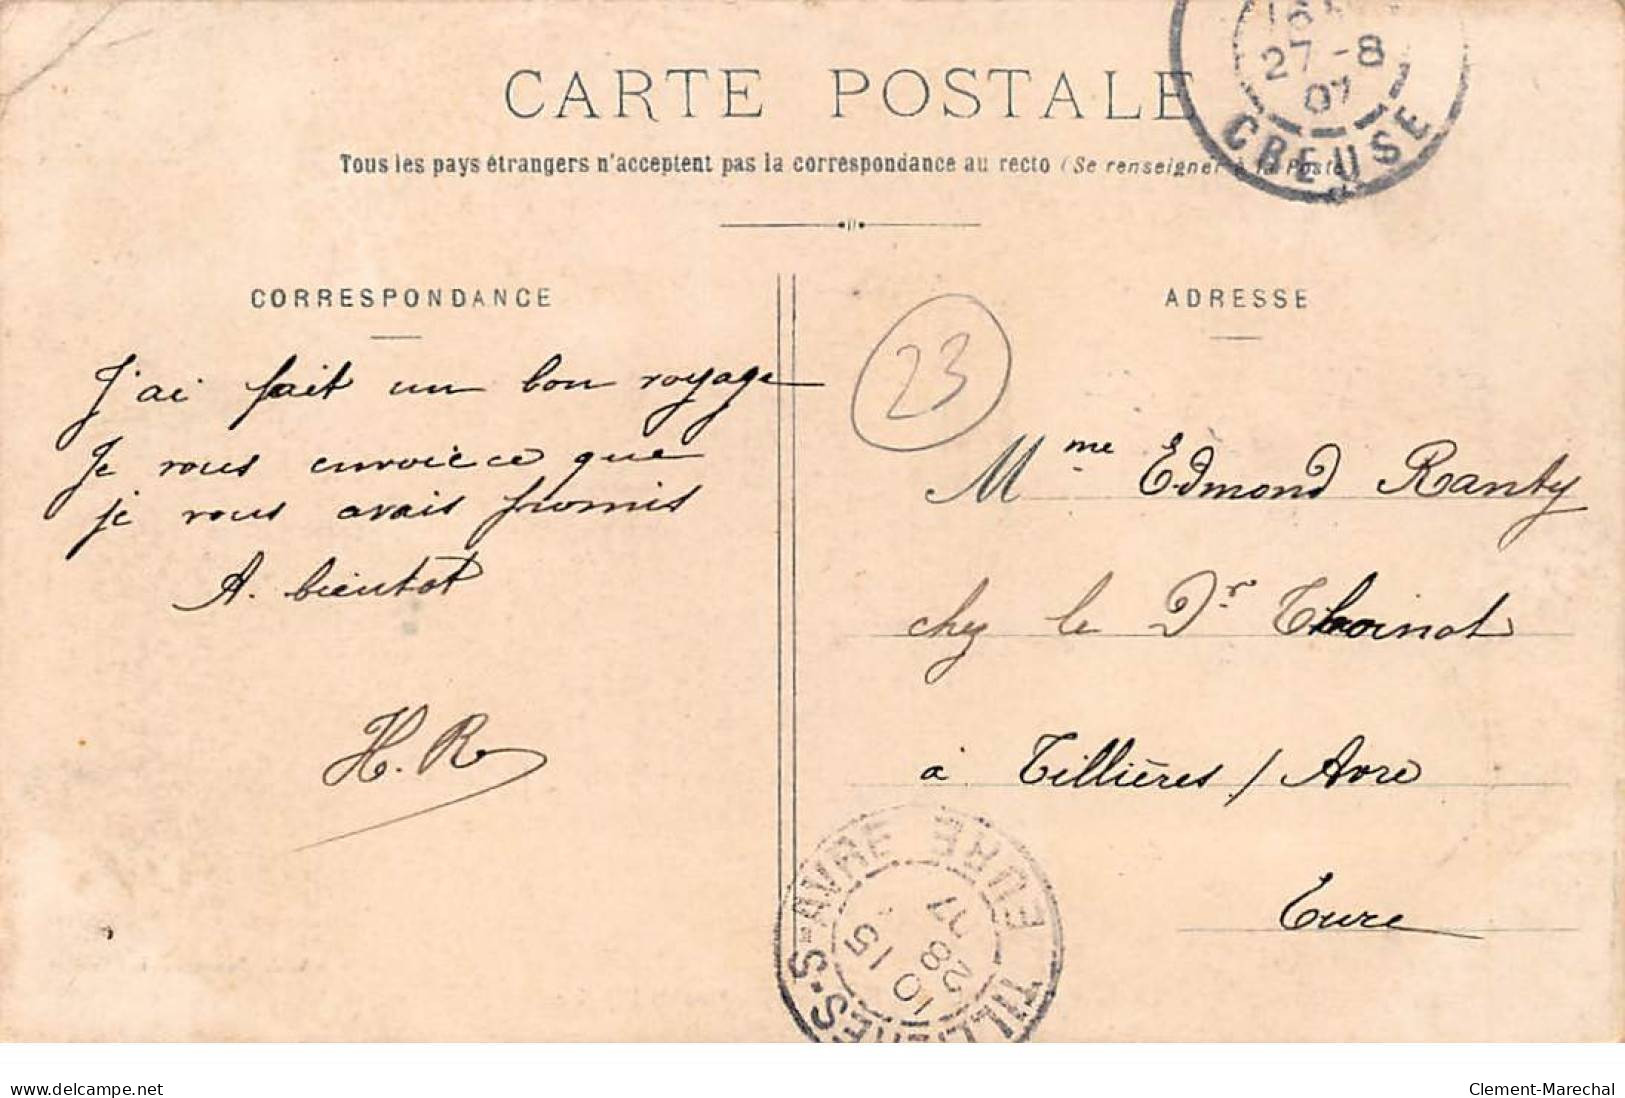 CARTE POSTALE
Tous les pays étrangers n'acceptent pas la correspondance au recto (Se renseigner à la Poste
27-8
07
CREUSE
CORRESPONDANCE
J'ai fait un bon voyage
Je vous envoie ce que
je vous avais promis
A. bientot
H. R
ADRESSE
23
Mme Edmond Ranty
chez le Dr Thoinot
à Tillières / Avre
Eure
TILLIÈRES-S-AVRE EURE
10 15
28
07
www.delcampe.net
Clement-Marechal